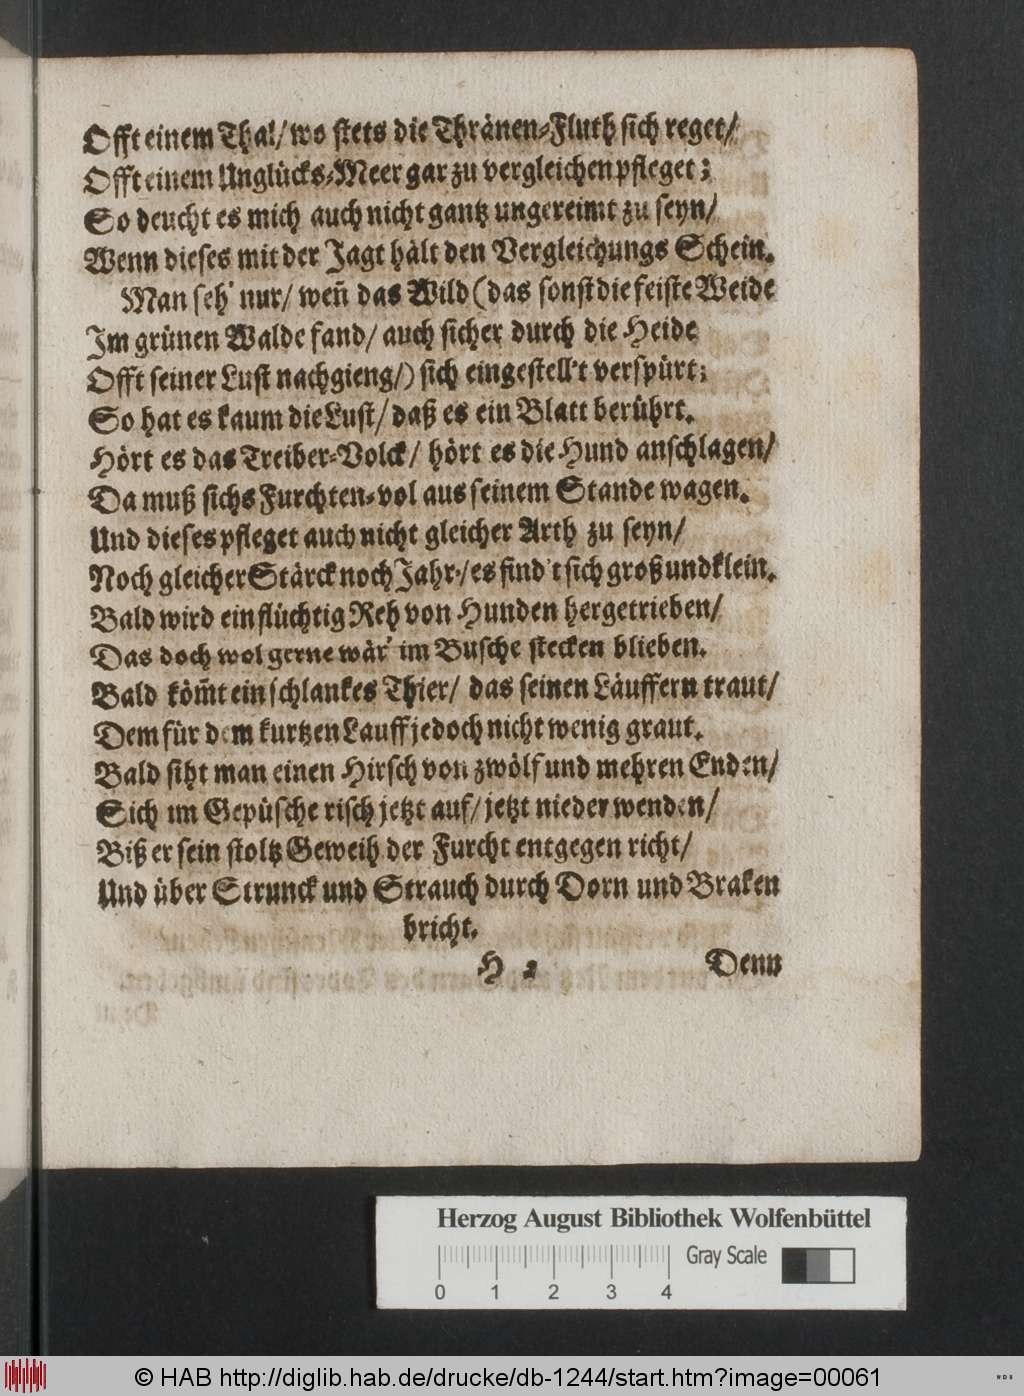 Offt einem Thal/ wo stets die Thränen-Fluth sich reget/
Offt einem Unglücks-Meer gar zu vergleichen pfleget;
So deucht es mich auch nicht gantz ungereimt zu seyn/
Wenn dieses mit der Jagt hält den Vergleichungs Schein.
Man seh' nur/ weñ das Wild (das sonst die feiste Weide
Im grünen Walde fand/ auch sicher durch die Heide
Offt seiner Lust nachgieng/) sich eingestell't verspürt;
So hat es kaum die Lust/ daß es ein Blatt berührt.
Hört es das Treiber-Volck/ hört es die Hund anschlagen/
Da muß sichs Furchten-vol aus seinem Stande wagen.
Und dieses pfleget auch nicht gleicher Arth zu seyn/
Noch gleicher Stärck noch Jahr/ es find't sich groß und klein.
Bald wird ein flüchtig Reh von Hunden hergetrieben/
Das doch wol gerne wär' im Busche stecken blieben.
Bald köm̃t ein schlankes Thier/ das seinen Läuffern traut/
Dem für dem kurtzen Lauff jedoch nicht wenig graut.
Bald siht man einen Hirsch von zwölf und mehren Enden/
Sich im Gepüsche risch jetzt auf/ jetzt nieder wenden/
Biß er sein stoltz Geweih der Furcht entgegen richt/
Und über Strunck und Strauch durch Dorn und Braken
bricht.
H 2 Denn
Herzog August Bibliothek Wolfenbüttel
Gray Scale
0 1 2 3 4
© HAB http://diglib.hab.de/drucke/db-1244/start.htm?image=00061